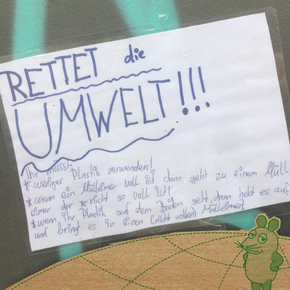 RETTET die
UMWELT!!!
Ihr müsst:
* weniger Plastik verwenden!
* wenn ein Mülleimer voll ist dann geht zu einem Müll
eimer der nicht so voll ist!
* wenn ihr Plastik auf dem Boden seht, dann hebt es auf
und bringt es in einen (nicht vollen) Mülleimer!